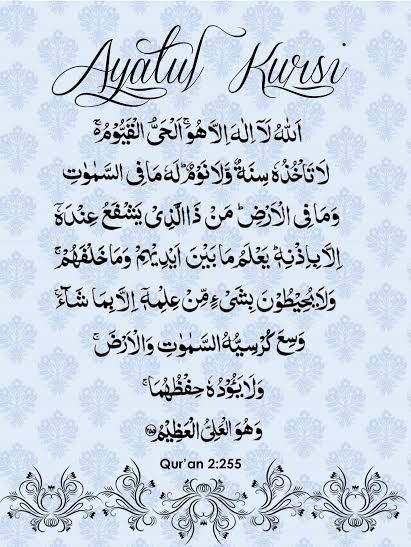 Ayatul Kursi
اَللّٰهُ لَآ اِلٰهَ اِلَّا هُوَ ۚ اَلْحَيُّ الْقَيُّوْمُ ۚ
لَا تَاْخُذُهٗ سِنَةٌ وَّلَا نَوْمٌ ؕ لَهٗ مَا فِى السَّمٰوٰتِ
وَمَا فِى الْاَرْضِ ؕ مَنْ ذَا الَّذِىْ يَشْفَعُ عِنْدَهٗۤ
اِلَّا بِاِذْنِهٖ ؕ يَعْلَمُ مَا بَيْنَ اَيْدِيْهِمْ وَمَا خَلْفَهُمْ ۚ
وَلَا يُحِيْطُوْنَ بِشَىْءٍ مِّنْ عِلْمِهٖۤ اِلَّا بِمَا شَآءَ ۚ
وَسِعَ كُرْسِيُّهُ السَّمٰوٰتِ وَالْاَرْضَ ۚ
وَلَا يَـُٔوْدُهٗ حِفْظُهُمَا ۚ
وَهُوَ الْعَلِىُّ الْعَظِيْمُ ﴿۲۵۵﴾
Qur'an 2:255